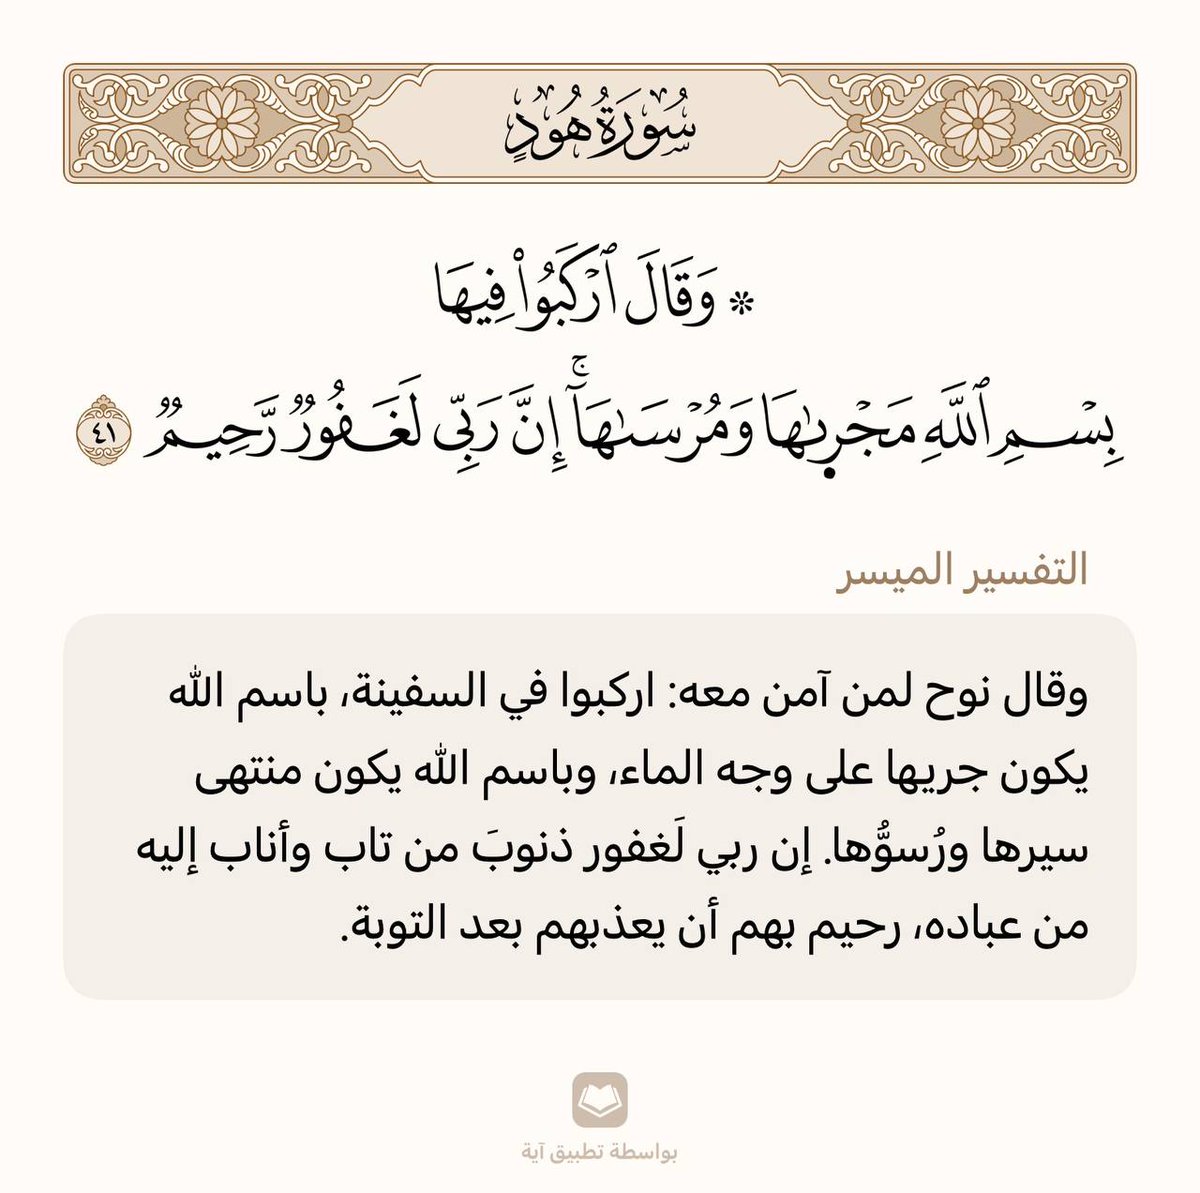 سُورَةُ هُودٍ
۞ وَقَالَ ٱرۡكَبُواْ فِيهَا
بِسۡمِ ٱللَّهِ مَجۡرٜىٰهَا وَمُرۡسَىٰهَآۚ إِنَّ رَبِّي لَغَفُورٞ رَّحِيمٞ ٤١
التفسير الميسر
وقال نوح لمن آمن معه: اركبوا في السفينة، باسم الله
يكون جريها على وجه الماء، وباسم الله يكون منتهى
سيرها ورُسوُّها. إن ربي لَغفور ذنوبَ من تاب وأناب إليه
من عباده، رحيم بهم أن يعذبهم بعد التوبة.
بواسطة تطبيق آية